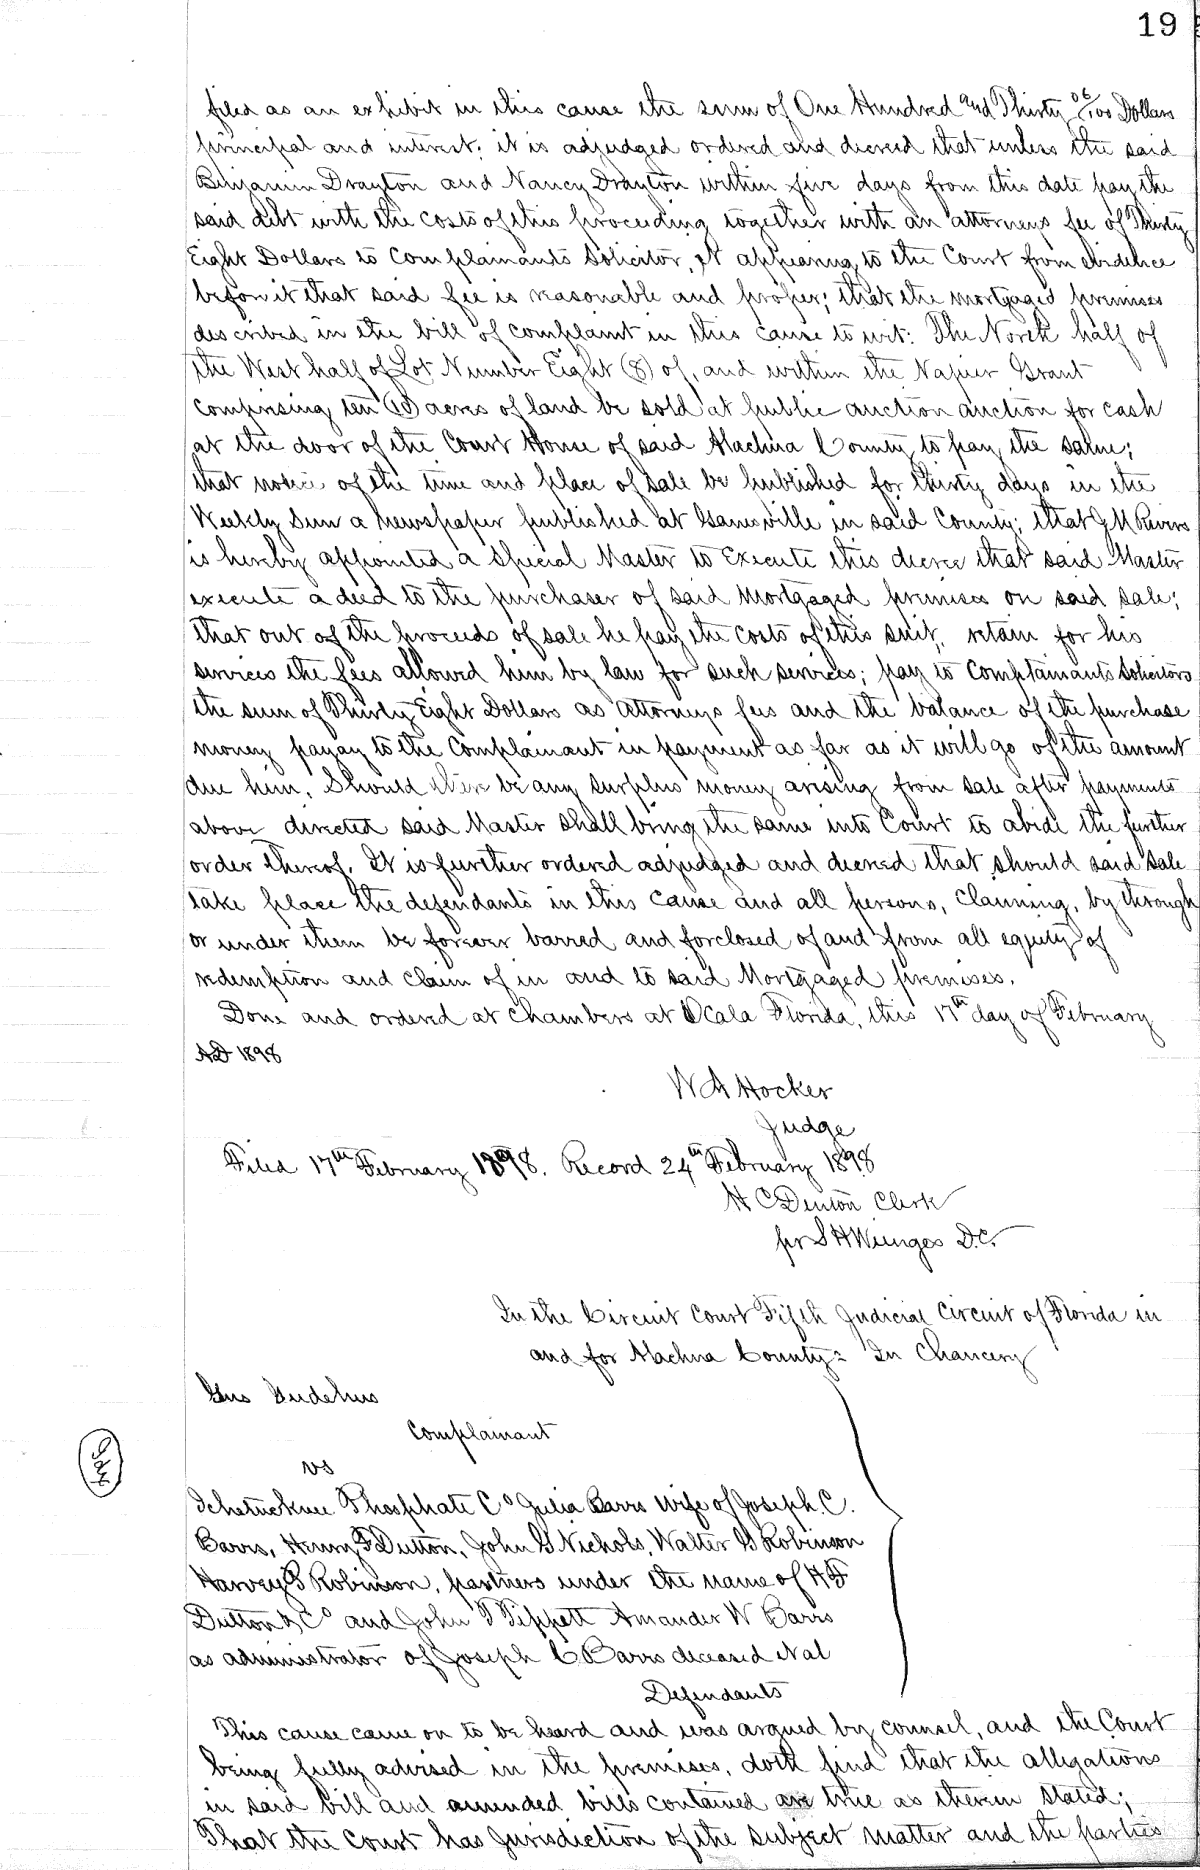 19
filed as an exhibit in this cause the sum of One Hundred and Thirty 06/100 Dollars
principal and interest; it is adjudged ordered and decreed that unless the said
Benjamin Drayton and Nancy Drayton within five days from this date pay the
said debt with the costs of this proceeding together with an attorneys fee of Thirty
Eight Dollars to Complainants Solicitor, it appearing to the Court from evidence
before it that said fee is reasonable and proper; that the mortgaged premises
described in the bill of complaint in this cause to wit: The North half of
the West half of Lot Number Eight (8) of, and within the Napier Grant
comprising ten (10) acres of land be sold at public auction auction for cash
at the door of the Court House of said Alachua County to pay the same;
that notice of the time and place of sale be published for thirty days in the
Weekly Sun a newspaper published at Gainesville in said County; that G M Rivers
is hereby appointed a Special Master to Execute this decree that said Master
execute a deed to the purchaser of said Mortgaged premises on said sale;
that out of the proceeds of sale he pay the costs of this suit, retain for his
services the fees allowed him by law for such services; pay to Complainants Solicitors
the sum of Thirty Eight Dollars as attorneys fees and the balance of the purchase
money payay to the Complainant in payment as far as it will go of the amount
due him. Should there be any surplus money arising from sale after payments
above directed said Master shall bring the same into Court to abide the further
order thereof. It is further ordered adjudged and decreed that should said Sale
take place the defendants in this cause and all persons, Claiming, by through
or under them be forever barred and forclosed of and from all equity of
redemption and claim of in and to said Mortgaged premises.
Done and ordered at Chambers at Ocala Florida, this 17th day of February
AD 1898
W A Hocker
Judge
Filed 17th February 1898. Record 24th February 1898
H C Denton Clerk
per S H Wienges D.C.
In the Circuit Court Fifth Judicial Circuit of Florida in
and for Alachua County: In Chancery
Gus Gudehus
Complainant
vs
Ichetucknee Phosphate Co Julia Barrs wife of Joseph C.
Barrs, Henry F Dutton, John G Nichols, Walter G Robinson
Harvey G Robinson, partners under the name of H F
Dutton & Co and John T Tippett Amander W Barrs
as administrator of Joseph C Barrs deceased et al
Defendants
This cause came on to be heard and was argued by counsel, and the Court
being fully advised in the premises, doth find that the allegations
in said bill and amended bills contained are true as therein stated;
That the Court has Jurisdiction of the subject matter and the parties